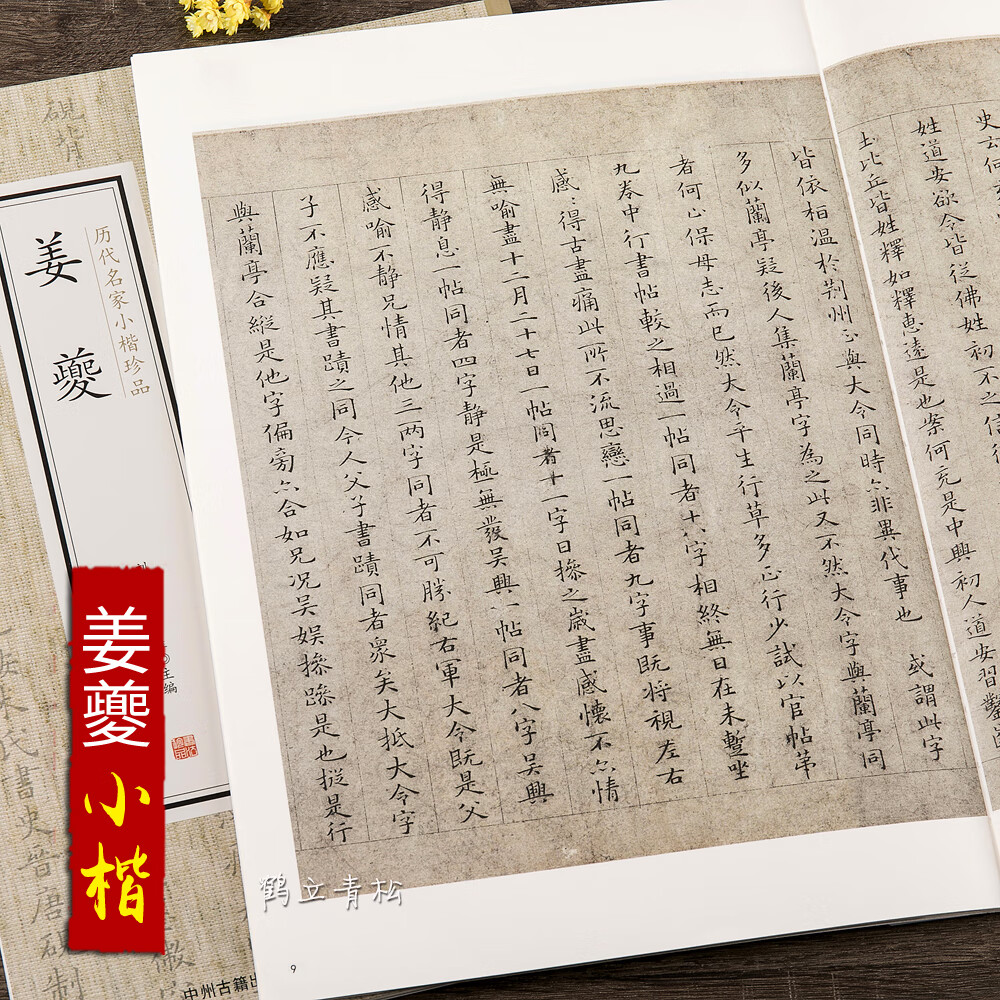 史云何
姓道安欲令皆從佛姓初不之信
土比丘皆姓釋如釋惠遠是也案何充是中興初人道安習鑿齒
皆依桓溫於荆州正與大令同時亦非異代事也 或謂此字
多似蘭亭疑後人集蘭亭字為之此又不然大令字與蘭亭同
者何止保母志而已然大令平生行草多正行少試以官帖第
九卷中行書帖較之相過一帖同者十八字相終無日在未蹔坐
感〻得古盡痛此所不流思戀一帖同者九字事既將視左右
無喻盡十二月二十七日一帖同者十一字日操之歲盡感懷不亦情
得静息一帖同者四字静是極無發吳興一帖同者八字吳興
感喻不静兄情其他三两字同者不可勝紀右軍大令既是父
子不應疑其書蹟之同今人父子書蹟同者衆矣大抵大令字
與蘭亭合縱是他字偏旁亦合如兄況吳娱操蹤是也揔是行
9
鹤立青松
历代名家小楷珍品
姜夔
主编
中州古籍出
姜夔小楷
硯背
書史晉唐硯制